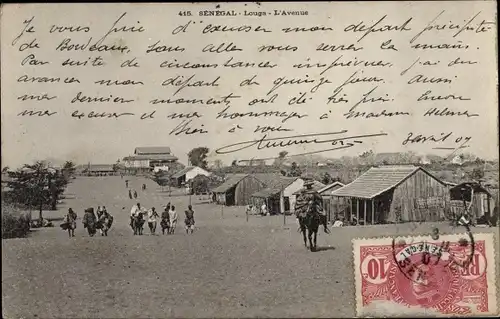 415. SÉNÉGAL - Louga - L'Avenue
Je vous prie d'excuser mon départ précipité
de Bordeaux, sans aller vous serrer la main.
Par suite de circonstances imprévues, j'ai du
avancer mon départ de quinze jours. Aussi
mes derniers moments ont été très pris. Encore
mes excuses et mes hommages à madame
bien à vous
3 avril 07
10
10
SÉNÉGAL